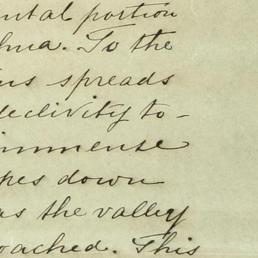 ental portion
hua. To the
us spreads
declivity to-
immense
pes down
as the valley
oached. This